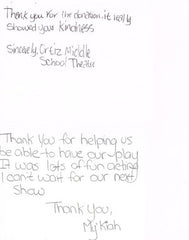 Thank you for the donation. it really
showed your kindness
Sincerely, Ortiz Middle
School Theater
Thank You for helping us
be able to have our play
It was lots of fun acting
I can't wait for our next
Show
Thank You,